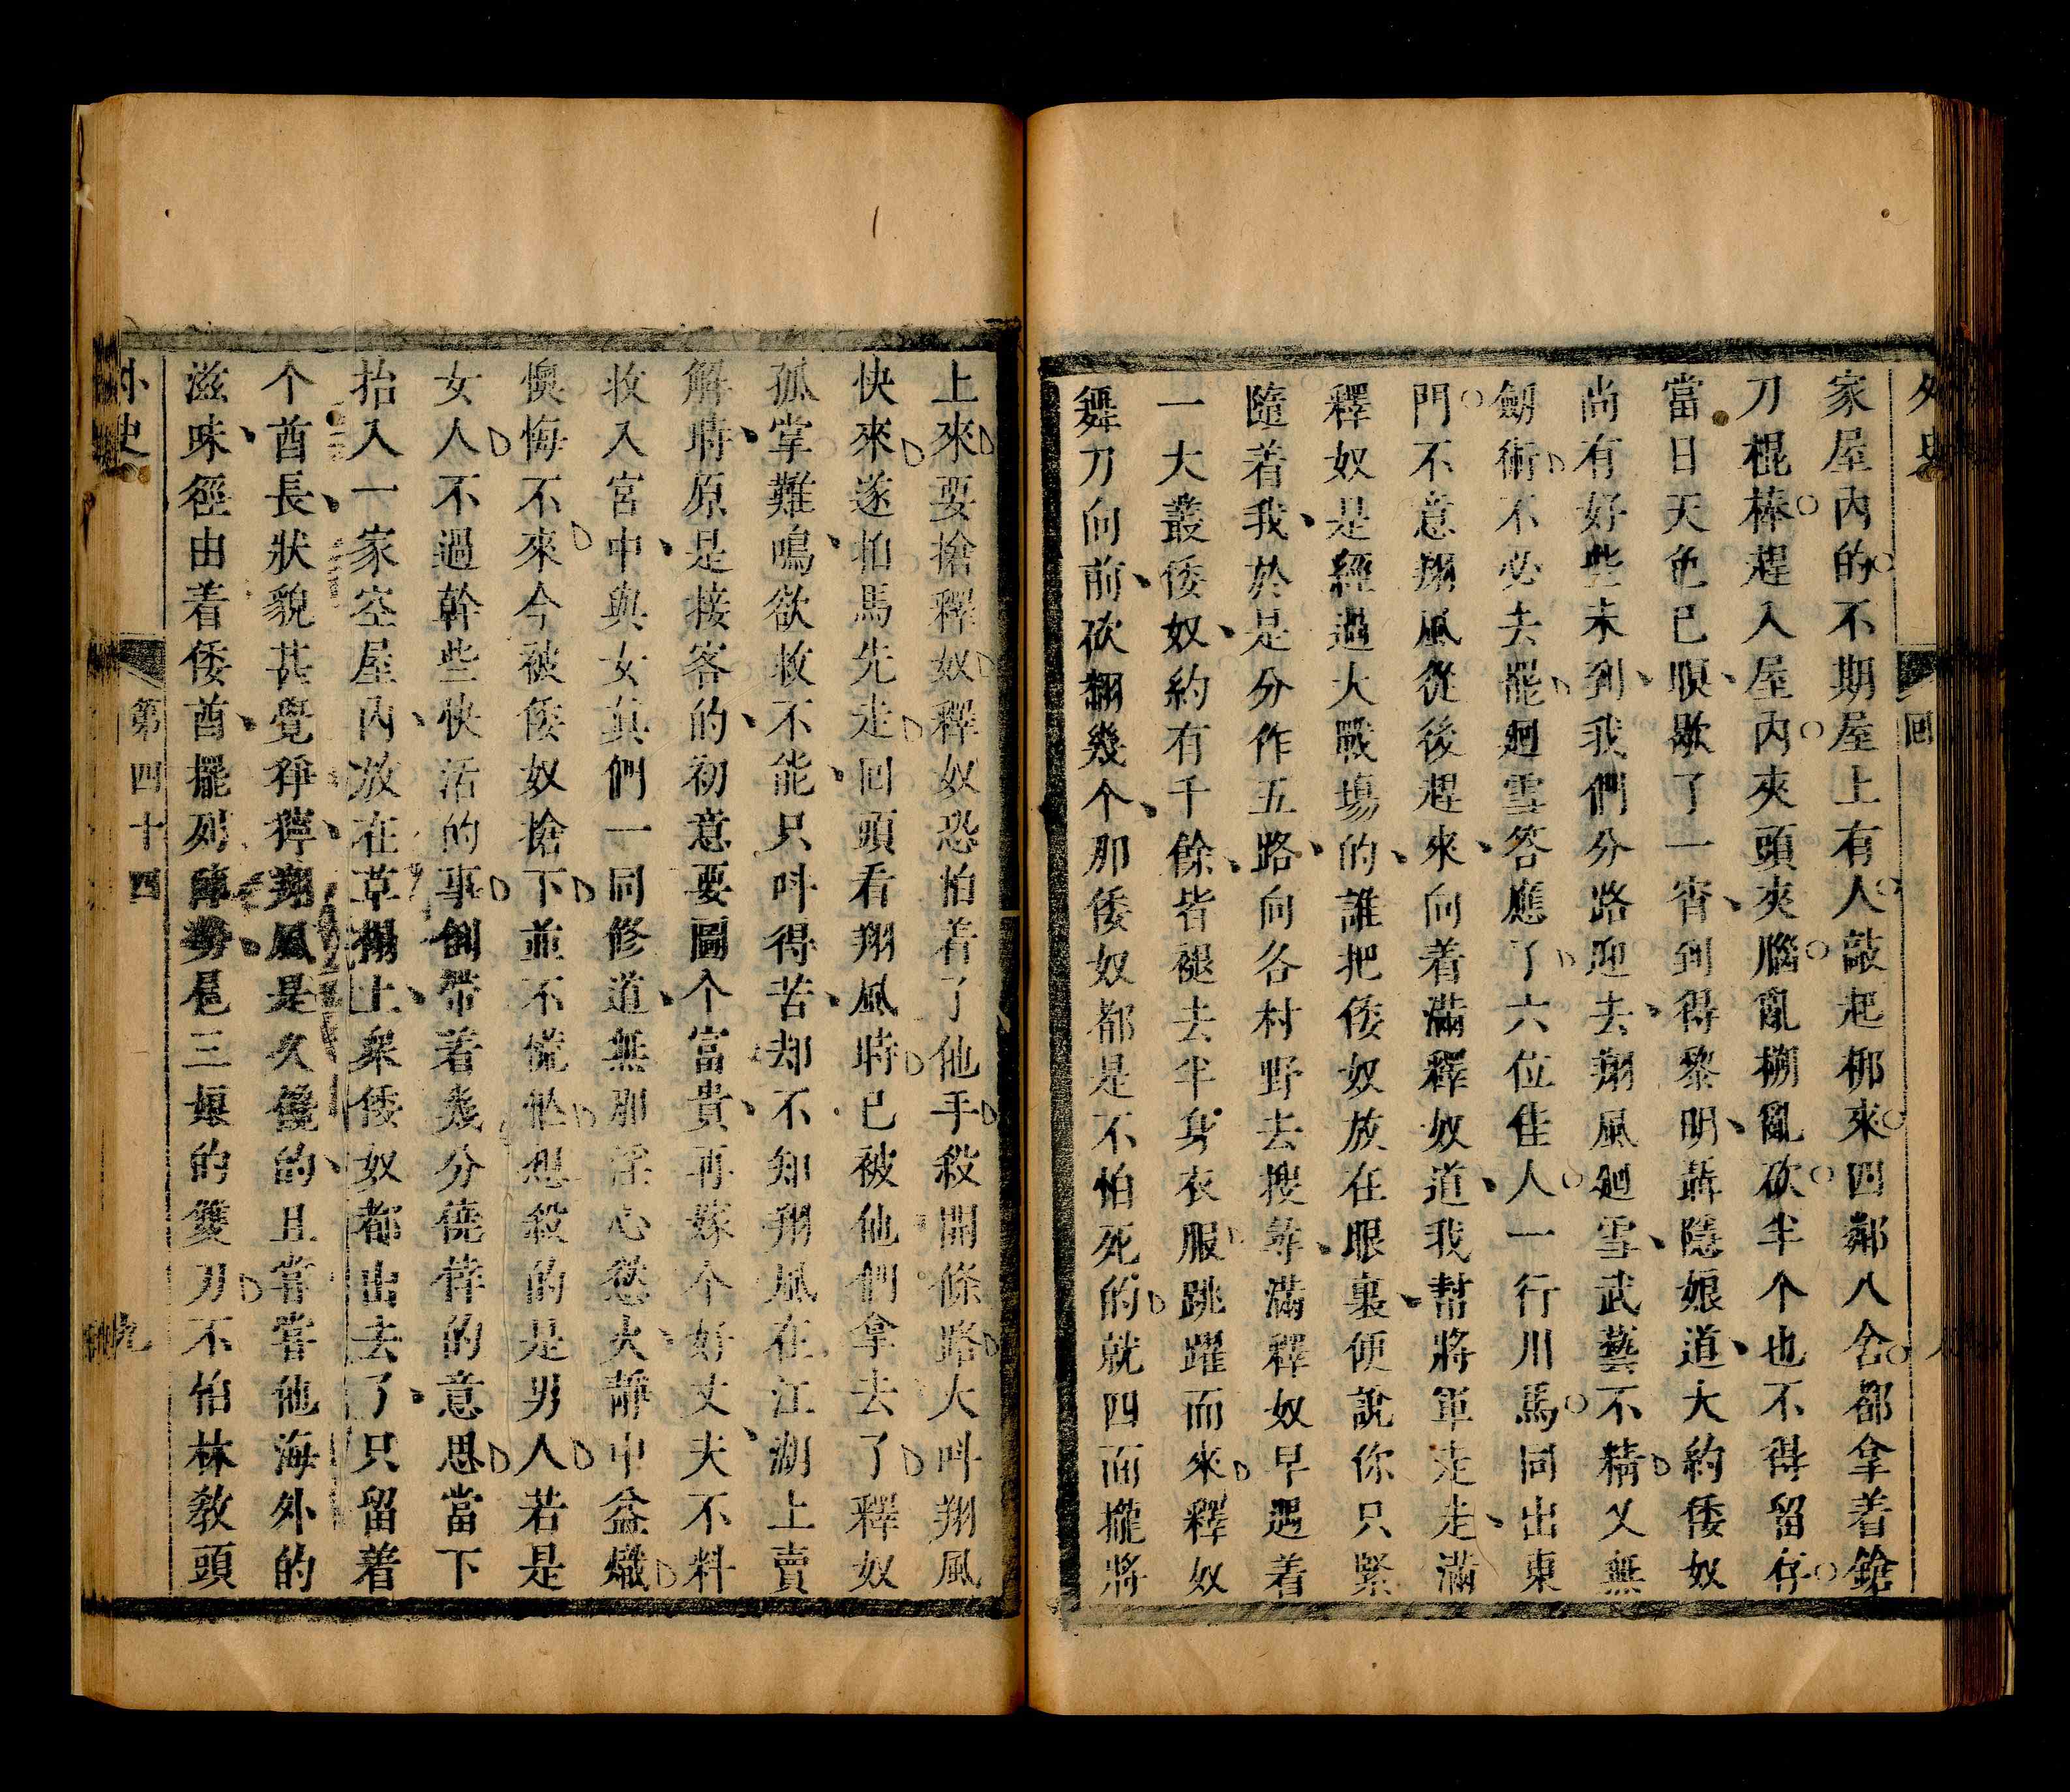 外史
回
家屋內的不期屋上有人敲起梆來四鄰八舍都拿着鎗
刀棍棒趕入屋內夾頭夾腦亂搠亂砍半个也不得留存
當日天色已暝歇了一宵到得黎明聶隱娘道大約倭奴
尚有好些未到我們分路迎去翔風廻雪武藝不精又無
劒術不必去罷廻雪答應了六位佳人一行川馬同出東
門不意翔風從後趕來向着滿釋奴道我幇將軍走走滿
釋奴是經過大戰場的誰把倭奴放在眼裏便說你只緊
隨着我於是分作五路向各村野去搜尋滿釋奴早遇着
一大叢倭奴約有千餘皆褪去半身衣服跳躍而來釋奴
舞刀向前砍翻幾个那倭奴都是不怕死的就四面攏將
上來要搶釋奴釋奴恐怕着了他手殺開條路大呌翔風
快來遂拍馬先走回頭看翔風時已被他們拿去了釋奴
孤掌難鳴欲救不能只呌得苦却不知翔風在江湖上賣
解時原是接客的初意要圖个富貴再嫁个好丈夫不料
收入宮中與女眞們一同修道無那淫心慾火靜中益熾
懊悔不來今被倭奴搶下並不慌他想殺的是男人若是
女人不過幹些快活的事倒帶着幾分僥倖的意思當下
抬入一家空屋內放在草榻上衆倭奴都出去了只留着
个酋長狀貌甚覺猙獰翔風是久饞的且嘗嘗他海外的
滋味徑由着倭酋擺列陣勢扈三娘的雙刀不怕林敎頭
外史
第四十四
九